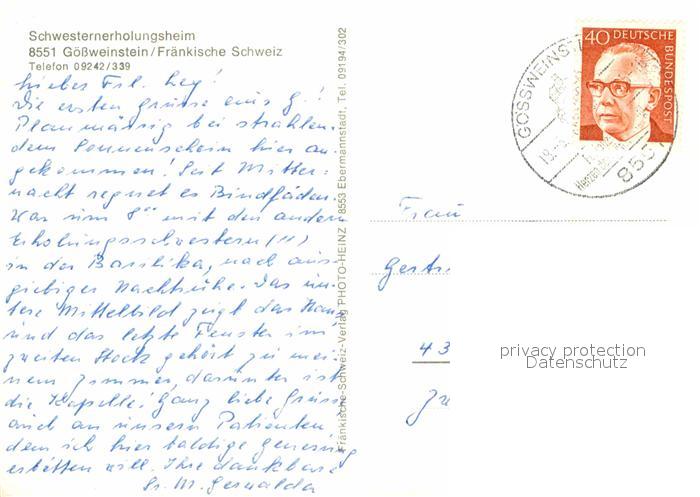 Schwesternerholungsheim
8551 Gößweinstein/Fränkische Schweiz
Telefon 09242/339
Liebes Frl. Ley!
Die ersten Grüsse aus G.!
Planmässig bei strahlen-
dem Sonnenschein hier an-
gekommen! Seit Mitter-
nacht regnet es Bindfäden.
War um 8⁰⁰ mit den andern
Erholungsschwestern (11)
in der Basilika, nach aus-
giebiger Nachtruhe. Das un-
tere Mittelbild zeigt das Haus,
und das letzte Fenster im
zweiten Stock gehört zu mei-
nem Zimmer, darunter ist
die Kapelle! Ganz liebe Grüsse
auch an unsern Patienten,
dem ich hier baldige Genesung
erbitten will. Ihre dankbare
Sr. M. Gerwalda
Fränkische-Schweiz-Verlag PHOTO-HEINZ 8553 Ebermannstadt, Tel. 09194/302
40 DEUTSCHE BUNDESPOST
GÖSSWEINSTEIN
8551
Frau
Gertr
43
privacy protection
Datenschutz